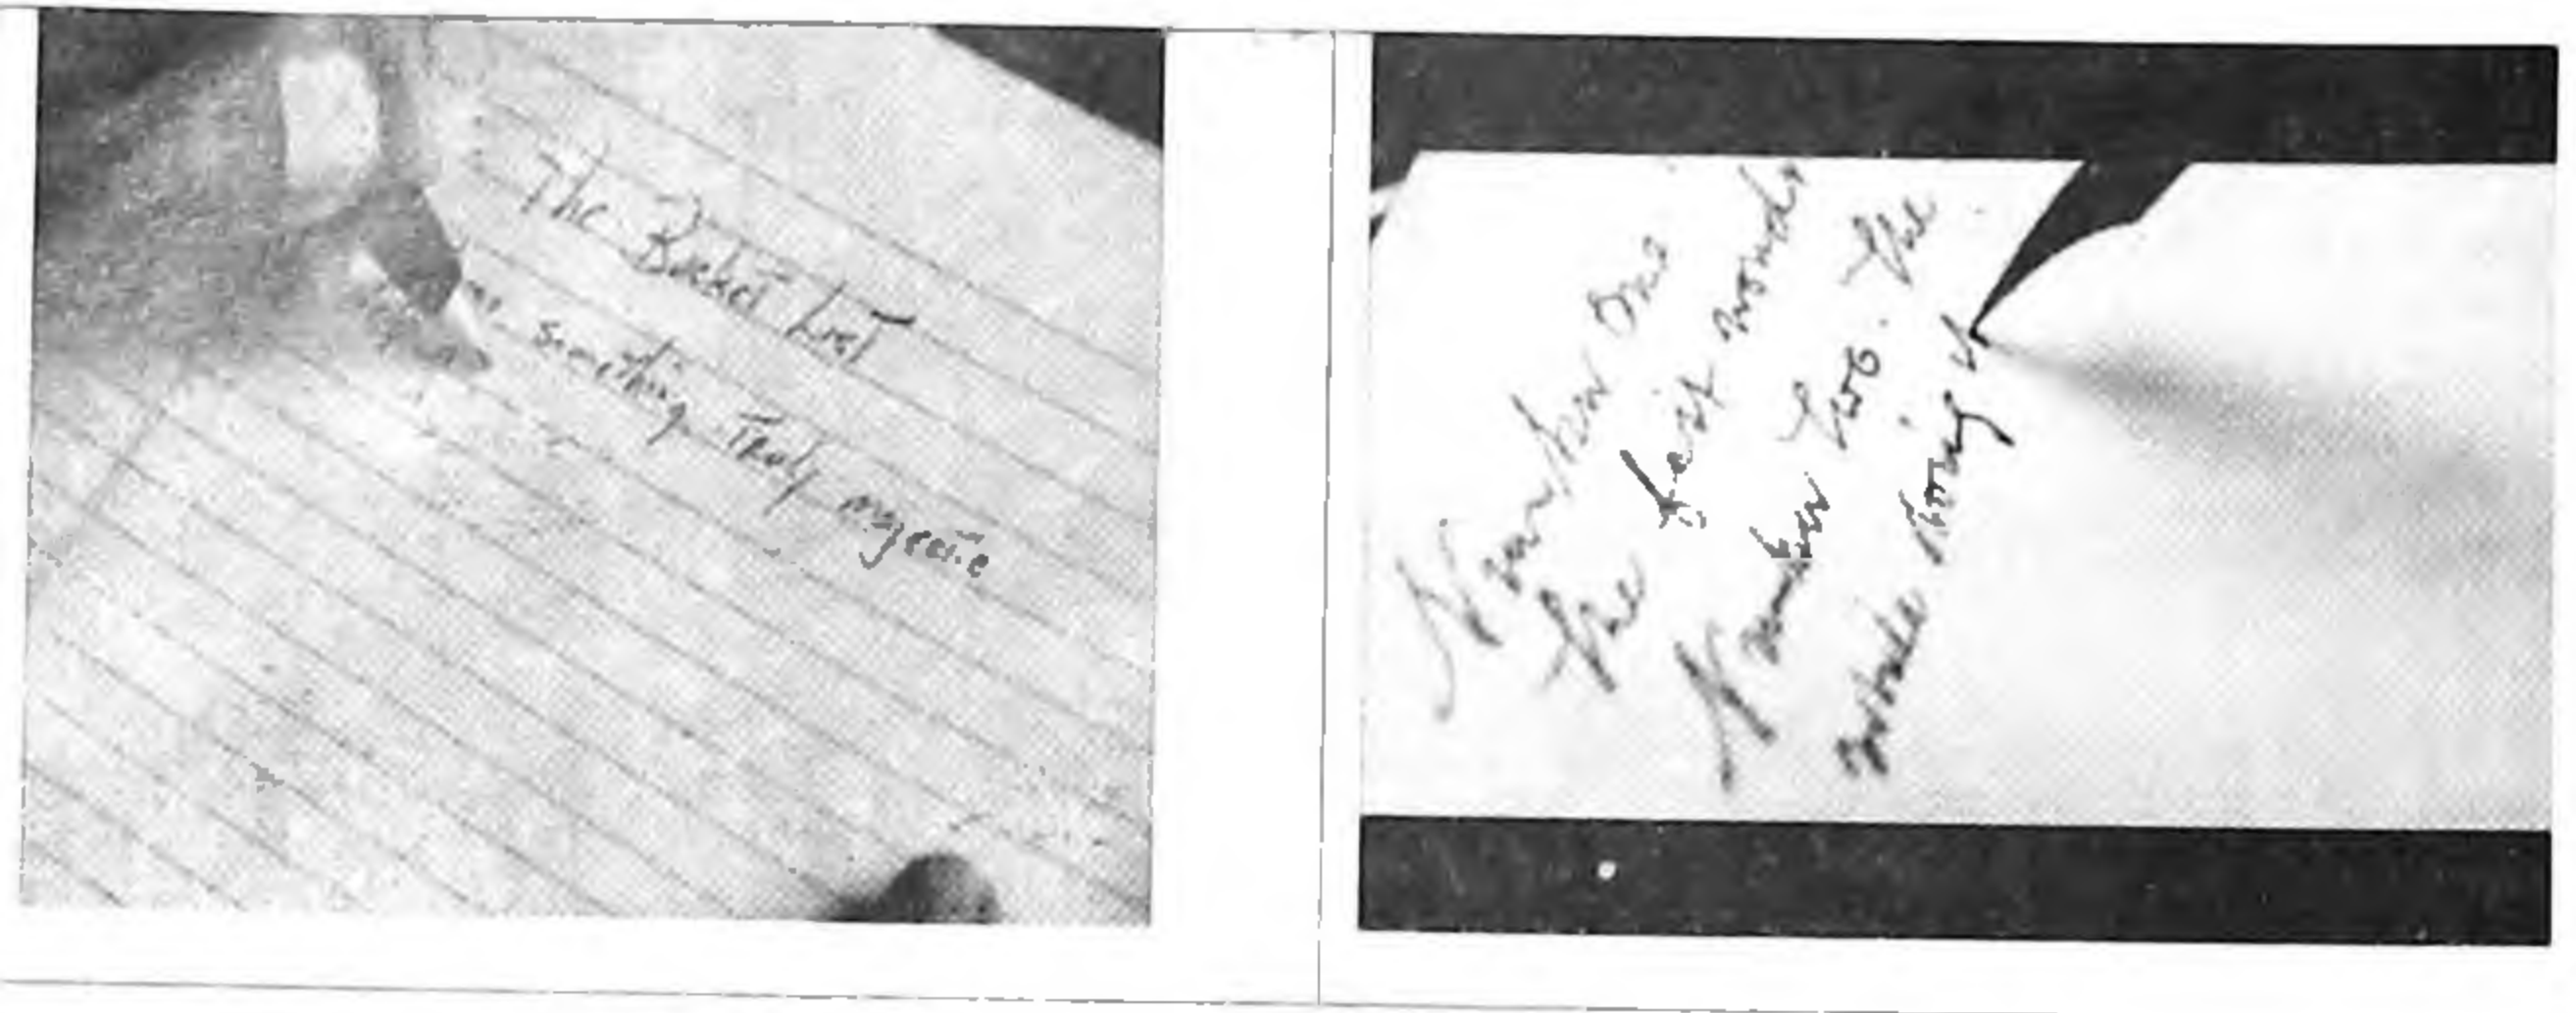 The Bucket List
something Truly majestic
Number one
the words
Number two. The
whole thing